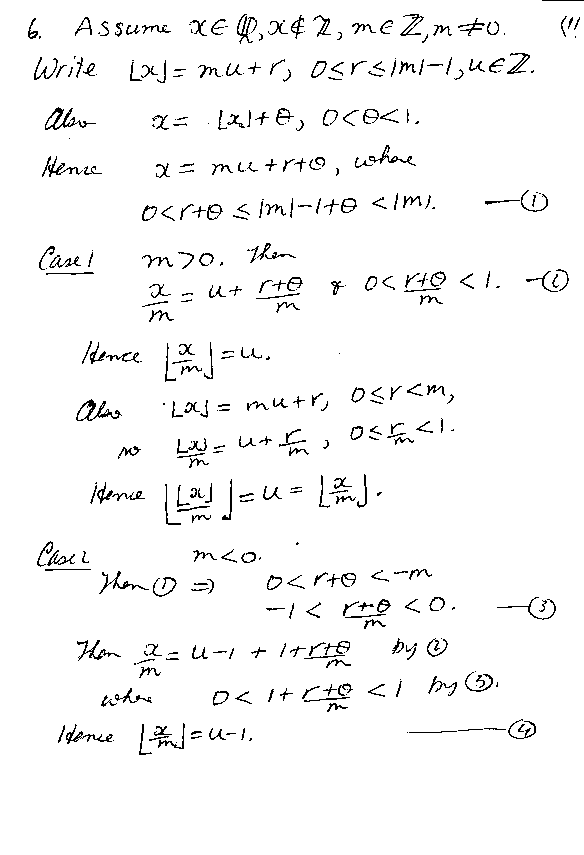 6. Assume x ∈ ℚ, x ∉ ℤ, m ∈ ℤ, m ≠ 0.
Write ⌊x⌋ = mu + r, 0 ≤ r ≤ |m|-1, u ∈ ℤ.
Also x = ⌊x⌋ + θ, 0 < θ < 1.
Hence x = mu + r + θ, where
0 < r+θ ≤ |m|-1+θ < |m|. —①
Case 1 m > 0. Then
x/m = u + (r+θ)/m & 0 < (r+θ)/m < 1. —②
Hence ⌊x/m⌋ = u.
Also ⌊x⌋ = mu + r, 0 ≤ r < m,
so ⌊x⌋/m = u + r/m, 0 ≤ r/m < 1.
Hence ⌊⌊x⌋/m⌋ = u = ⌊x/m⌋.
Case 2 m < 0.
Then ① ⇒ 0 < r+θ < -m
-1 < (r+θ)/m < 0. —③
Then x/m = u-1 + 1 + (r+θ)/m by ②
where 0 < 1 + (r+θ)/m < 1 by ③.
Hence ⌊x/m⌋ = u-1. —④